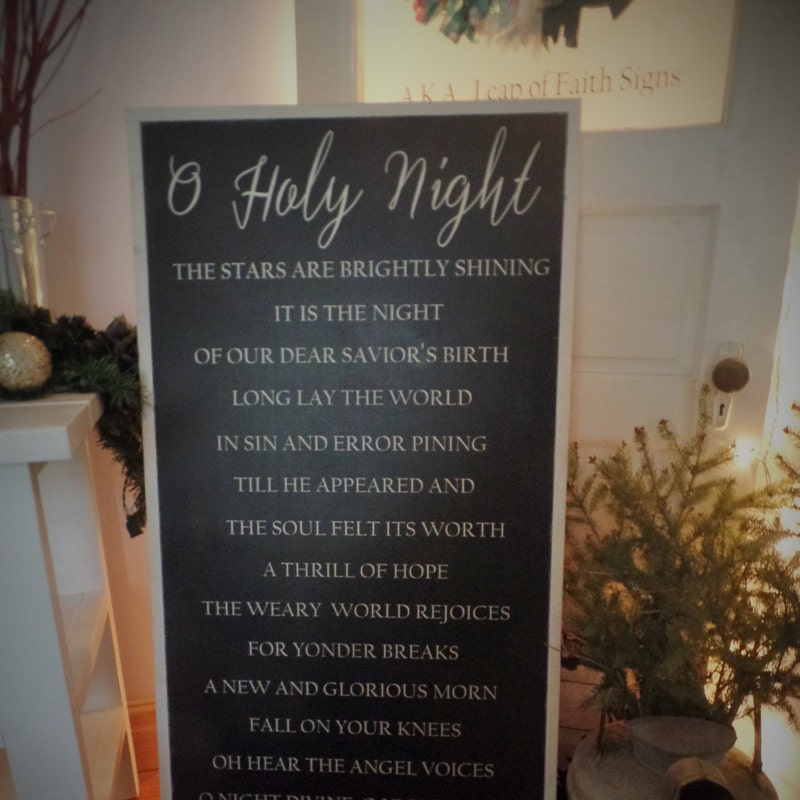 A.K.A. Leap of Faith Signs
O Holy Night
THE STARS ARE BRIGHTLY SHINING
IT IS THE NIGHT
OF OUR DEAR SAVIOR'S BIRTH
LONG LAY THE WORLD
IN SIN AND ERROR PINING
TILL HE APPEARED AND
THE SOUL FELT ITS WORTH
A THRILL OF HOPE
THE WEARY WORLD REJOICES
FOR YONDER BREAKS
A NEW AND GLORIOUS MORN
FALL ON YOUR KNEES
OH HEAR THE ANGEL VOICES
O NIGHT DIVINE